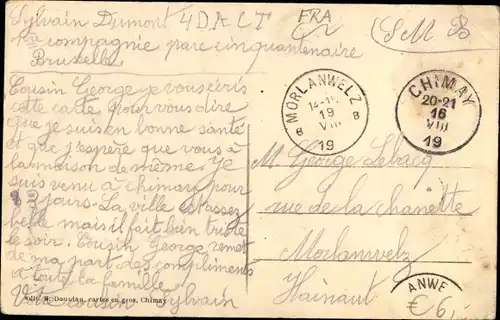 Sylvain Dumont 4 D A C T FRA
1ère compagnie parc cinquantenaire (S M B)
Bruxelles
Cousin George je vous écris
cette carte pour vous dire
que je suis en bonne santé
et que j'espère que vous à
la maison de même. Je
suis venu à chimay pour
8 jours. La ville est assez
belle mais il fait bien triste
le soir. Cousin George remet
de ma part des compliments
à toute la famille.
Votre cousin Sylvain
MORLANWELZ
19
VIII
B B
19
CHIMAY
20-21
16
VIII
19
M George Lebacq
rue de la chanette
Morlanwelz
Hainaut
ANWE
€ 6,
Chimay